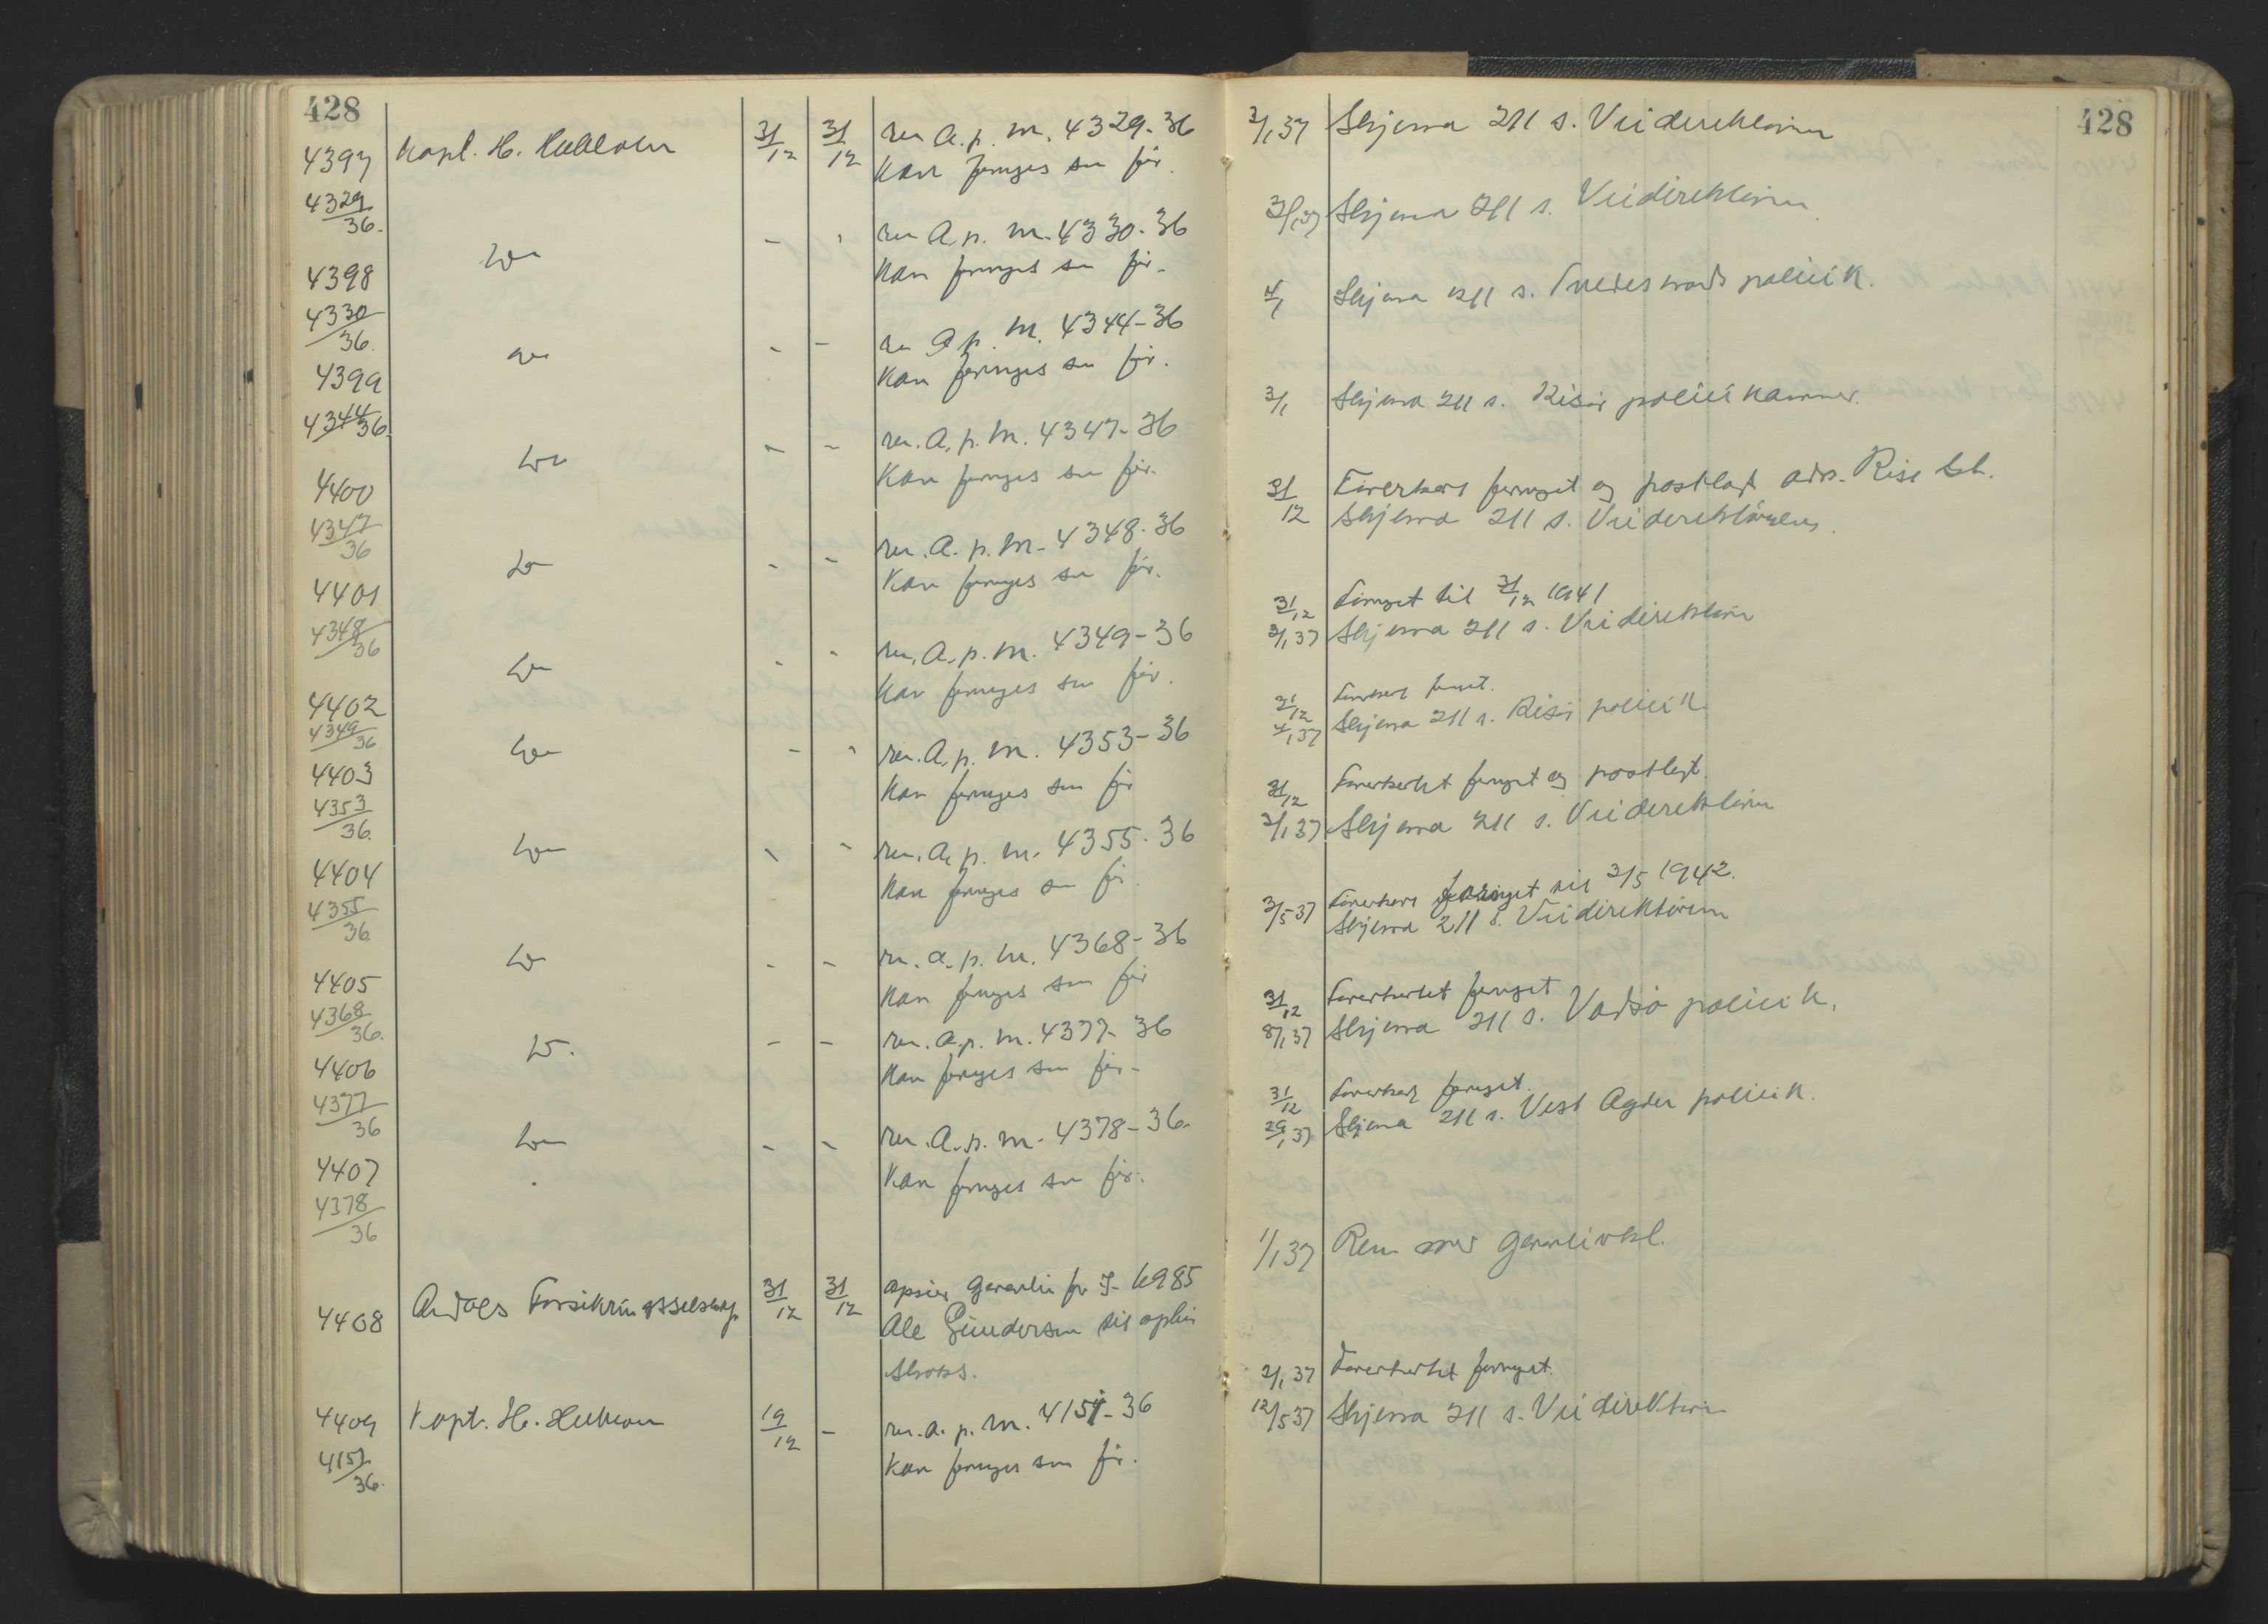 428
4397 Kapt. H. 31/12 31/12 A. p. m. 4329-36
Kan fornyes som før.
4329/36.
4398 - - A. p. m. 4330-36
Kan fornyes som før.
4330/36.
4399 - - A. p. m. 4344-36
Kan fornyes som før.
4344/36.
4400 - - A. p. m. 4347-36
Kan fornyes som før.
4347/36
4401 - - A. p. m. 4348-36
Kan fornyes som før.
4348/36
4402 - - A. p. m. 4349-36
Kan fornyes som før.
4349/36
4403 - - A. p. m. 4353-36
Kan fornyes som før
4353/36.
4404 - - A. p. m. 4355-36
Kan fornyes som før.
4355/36.
4405 - - a. p. m. 4368-36
Kan fornyes som før
4368/36.
4406 - - a. p. m. 4377-36
Kan fornyes som før.
4377/36
4407 - - A. p. m. 4378-36.
Kan fornyes som før.
4378/36
4408 Forsikringsselskap 31/12 31/12 garanti for I- 6985
Gundersen til
straks.
4409 Kapt. H. 19/12 - a. p. m. 36
Kan fornyes som før.
36.
428
2/1 37 Skjema 211 s. Veidirektøren
2/1 37 Skjema 211 s. Veidirektøren
4/1 Skjema 211 s. Tvedestrand politik.
2/1 Skjema 211 s. Risør politikammer.
31/12 Førerkort fornyet og postlagt adr.
Skjema 211 s. Veidirektøren.
31/12 Fornyet til 31/12 1941
2/1 37 Skjema 211 s. Veidirektøren
31/12 Førerkort fornyet.
4/1 37 Skjema 211 s. Risør politik.
31/12 Førerkortet fornyet og postlagt.
2/1 37 Skjema 211 s. Veidirektøren
3/5 37 Førerkort fornyet til 3/5 1942.
Skjema 211 s. Veidirektøren
31/12 Førerkortet fornyet
8/1 37 Skjema 211 s. Vadsø politik.
31/12 Førerkort fornyet.
29/1 37 Skjema 211 s. Vest Agder politik.
1/1 37 med garantierkl.
2/1 37 Førerkortet fornyet.
12/5 37 Skjema 211 s. Veidirektøren